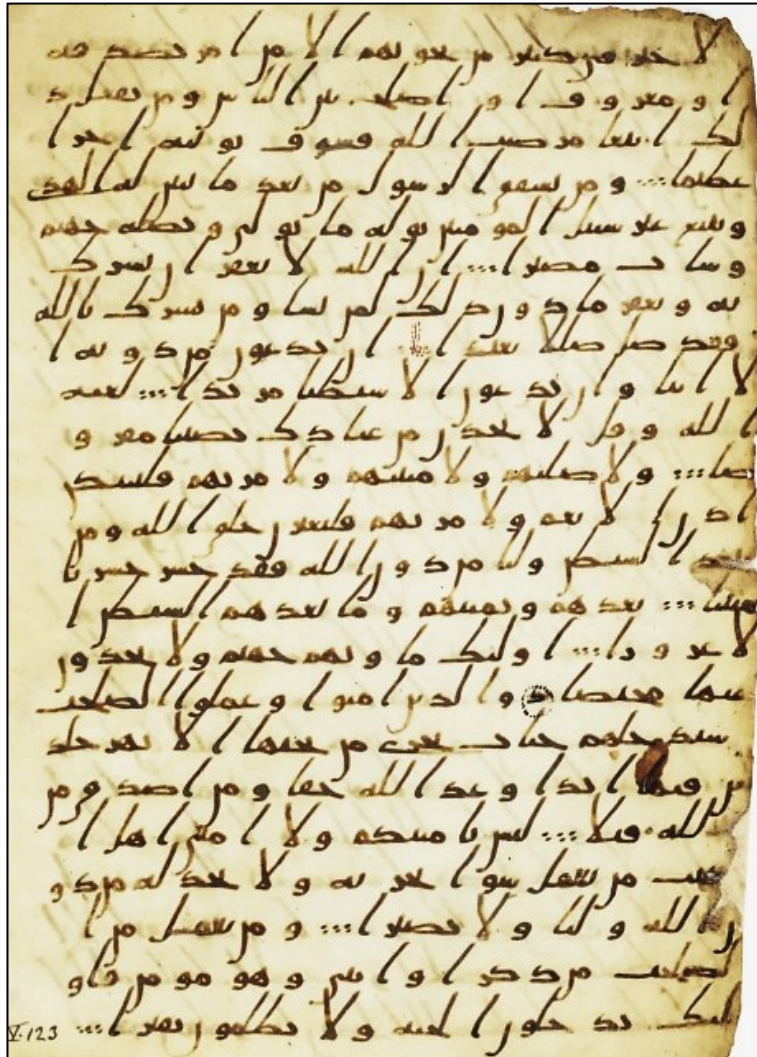 لا خير في كثير من نجويهم الا من امر بصدقه
ا و معروف او اصلح بين الناس ومن يفعل ذ
لك ابتغا مرضت الله فسوف نوتيه اجرا
عظيما ومن يشقق الرسول من بعد ما تبين له الهدى
ويتبع غير سبيل المومنين نوله ما تولى ونصله جهنم
وسات مصيرا ان الله لا يغفر ان يشرك
به ويغفر ما دون ذلك لمن يشا ومن يشرك بالله
فقد ضل ضللا بعيدا ان يدعون من دونه ا
لا انثا وان يدعون الا شيطنا مريدا لعنه
الله وقل لاتخذن من عبادك نصيبا مفرو
ضا ولاضلنهم ولامنينهم ولامرنهم فليبتكن
اذن الانعم ولامرنهم فليغيرن خلق الله ومن
يتخذ الشيطن وليا من دون الله فقد خسر خسرنا
مبينا يعدهم ويمنيهم وما يعدهم الشيطن ا
لا غرورا اوليك ماويهم جهنم ولا يجدون
عنها محيصا والذين امنوا وعملوا الصلحت
سندخلهم جنات تجري من تحتها الانهر خلد
ين فيها ابدا وعد الله حقا ومن اصدق من
الله قيلا ليس بامنيكم ولا امني اهل ا
لكتب من يعمل سوا يجز به ولا يجد له من دو
ن الله وليا ولا نصيرا ومن يعمل من ا
لصلحت من ذكر او انثى وهو مومن فاو
ليك يدخلون الجنه ولا يظلمون نقيرا
V.123